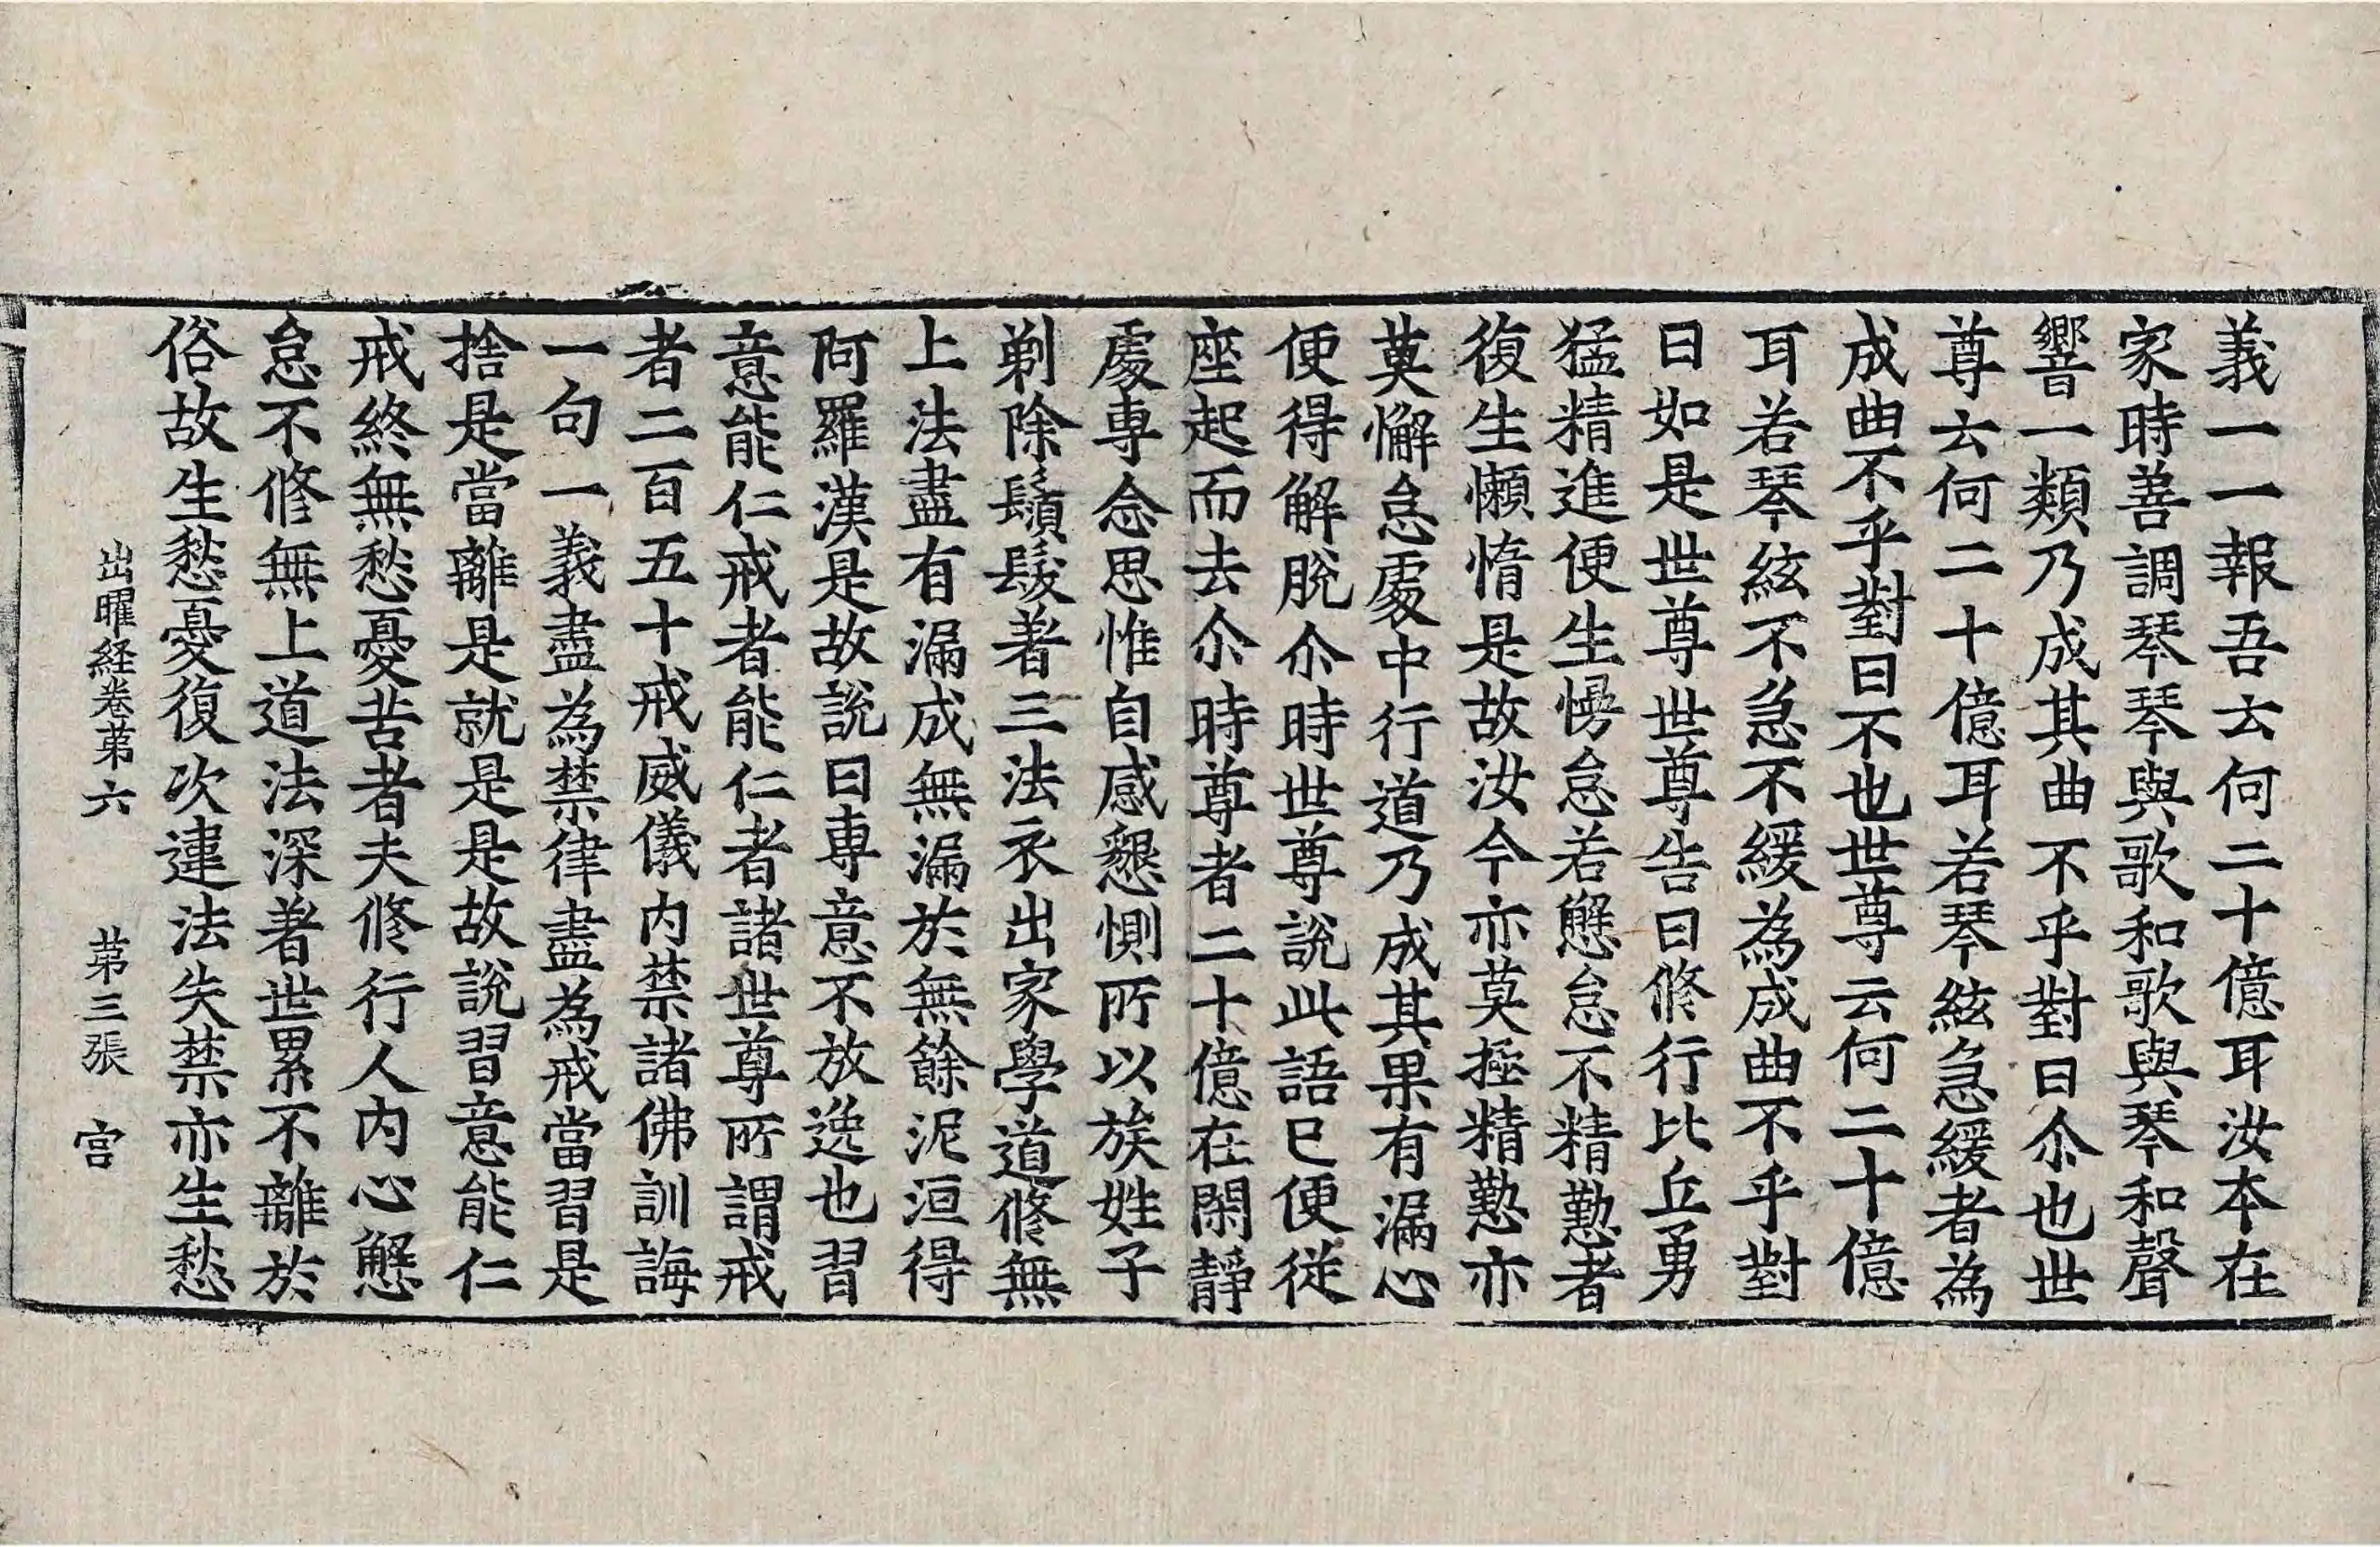 義一一報吾云何二十億耳汝本在
家時善調琴琴與歌和歌與琴和聲
響一類乃成其曲不乎對曰尒也世
尊云何二十億耳若琴絃急緩者為
成曲不乎對曰不也世尊云何二十億
耳若琴絃不急不緩為成曲不乎對
曰如是世尊世尊告曰修行比丘勇
猛精進便生慢怠若懈怠不精懃者
復生懶惰是故汝今亦莫極精懃亦
莫懈怠處中行道乃成其果有漏心
便得解脫尒時世尊說此語已便從
座起而去尒時尊者二十億在閑靜
處專念思惟自感懇惻所以族姓子
剃除鬚髮著三法衣出家學道修無
上法盡有漏成無漏於無餘泥洹得
阿羅漢是故說曰專意不放逸也習
意能仁戒者能仁者諸世尊所謂戒
者二百五十戒威儀內禁諸佛訓誨
一句一義盡為禁律盡為戒當習是
捨是當離是就是是故說習意能仁
戒終無愁憂苦者夫修行人內心懈
怠不修無上道法深著世累不離於
俗故生愁憂復次違法失禁亦生愁
出曜経卷苐六 苐三張 宮